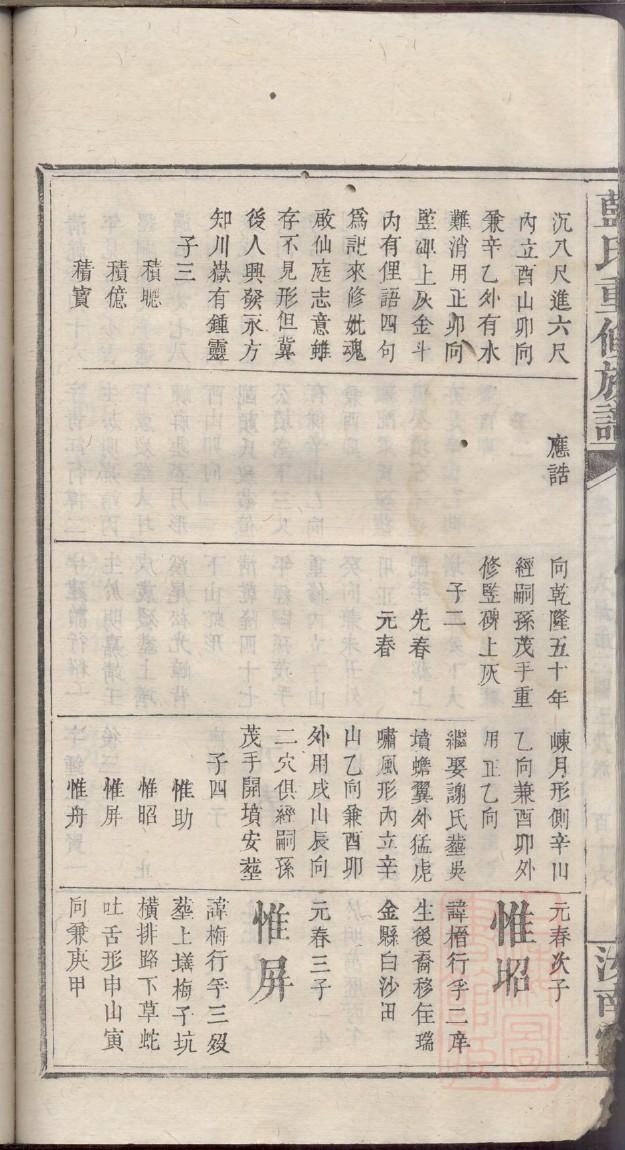 藍氏重修族譜
汝南堂
沉八尺進六尺
內立酉山卯向
兼辛乙外有水
難消用正卯向
竪碑上灰金斗
內有俚語四句
為記來修妣魂
敢仙庭志意雖
存不見形但冀
後人興發永方
知川嶽有鍾靈
子三
積聰
積億
積寶
應誥
向乾隆五十年
經嗣孫茂手重
修竪碑上灰
子二
先春
元春
崠月形側辛山
乙向兼酉卯外
用正乙向
繼娶謝氏塟吳
墳蟾翼外猛虎
嘯風形內立辛
山乙向兼酉卯
外用戌山辰向
二穴俱經嗣孫
茂手開墳安塟
子四
惟助
惟昭
惟屏
惟舟
元春次子
惟昭
諱楿行乎二庠
生後裔移住瑞
金縣白沙田
元春三子
惟屏
諱梅行乎三歿
塟上墴梅子坑
橫排路下草蛇
吐舌形申山寅
向兼庚甲